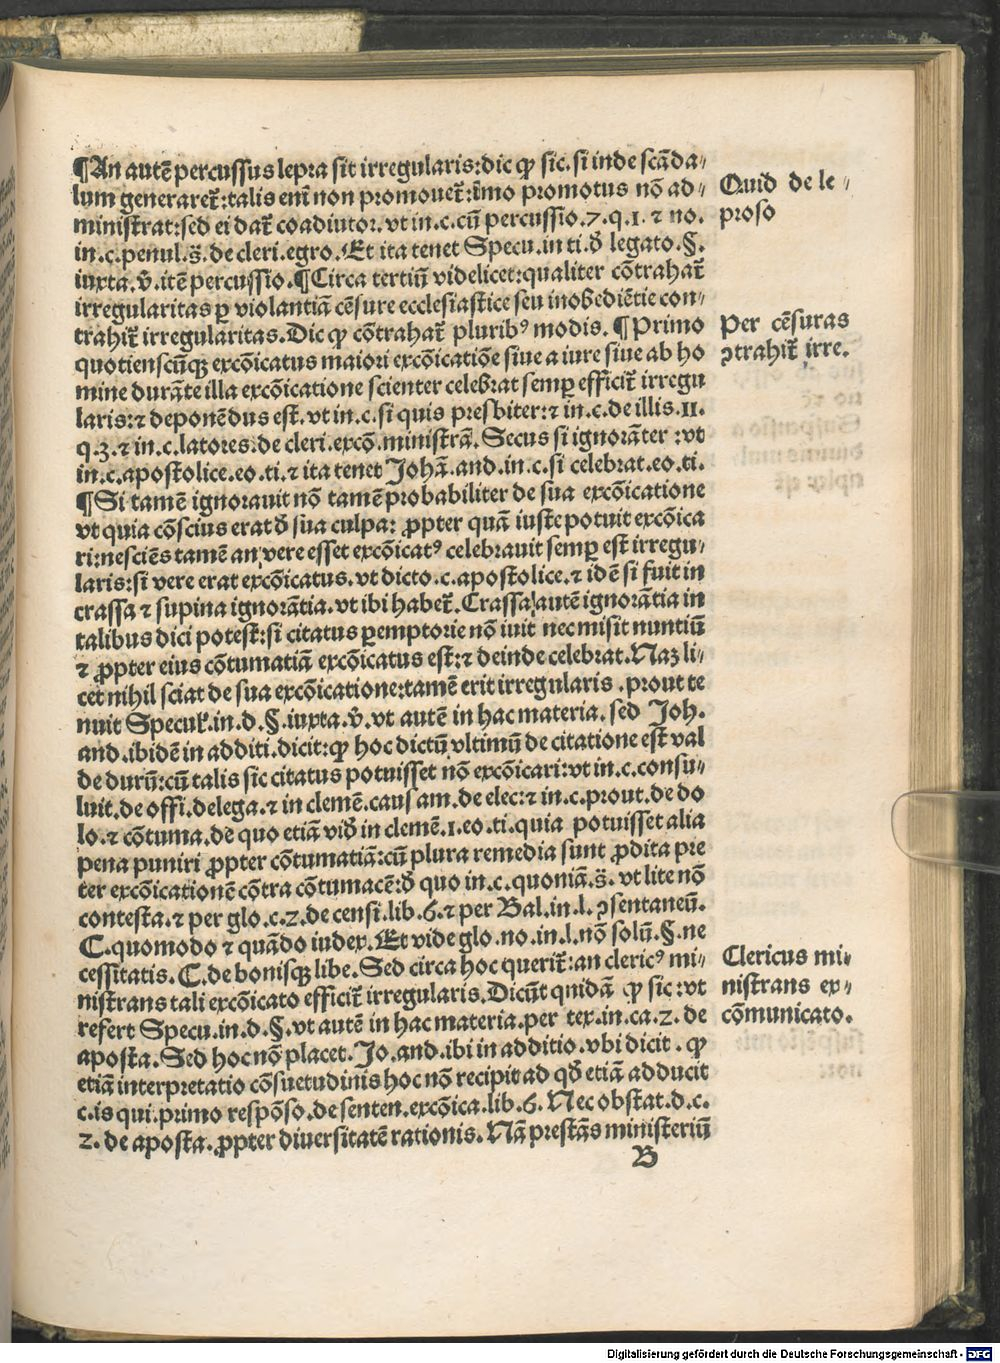 ¶An autē percussus lepra sit irregularis: dic ꝙ sic. si inde scāda⸗
lum generaret̄: talis enī non promouet̄: īmo promotus nō ad⸗
ministrat: sed ei dat̄ coadiutor. vt in. c. cū percussio. 7. q. 1. ⁊ no.
in. c. penul. s̄. de cleri. egro. Et ita tenet Specu. in ti. ð legato. §.
iuxta. v̄. itē percussio. ¶Circa tertiū videlicet: qualiter cōtrahat̄
irregularitas ꝑ violantiā cēsure ecclesiastice seu inobediētie con⸗
trahit̄ irregularitas. Dic ꝙ cōtrahat̄ pluribꝰ modis. ¶Primo
quotienscūqꝫ excōicatus maiori excōicatiōe siue a iure siue ab ho
mine durāte illa excōicatione scienter celebrat semꝑ efficit̄ irregu
laris: ⁊ deponēdus est. vt in. c. si quis presbiter: ⁊ in. c. de illis. 11.
q. 3. ⁊ in. c. latores: de cleri. excō. ministrā. Secus si ignorāter: vt
in. c. apostolice. eo. ti. ⁊ ita tenet Johā. and. in. c. si celebrat. eo. ti.
¶Si tamē ignorauit nō tamē probabiliter de sua excōicatione
vt quia cōscius erat ð sua culpa: ꝓpter quā iuste potuit excōica
ri: nesciēs tamē an vere esset excōicatꝰ celebrauit semꝑ est irregu⸗
laris: si vere erat excōicatus. vt dicto. c. apostolice. ⁊ idē si fuit in
crassa ⁊ supina ignorātia. vt ibi habet̄. Crassa autē ignorātia in
talibus dici potest: si citatus ꝑemptorie nō iuit nec misit nuntiū
⁊ ꝓpter eius cōtumatiā excōicatus est: ⁊ deinde celebrat. Naꝫ li⸗
cet nihil sciat de sua excōicatione: tamē erit irregularis. prout te
nuit Specul̄. in. d. §. iuxta. v̄. vt autē in hac materia. sed Joh.
and. ibidē in additi. dicit: ꝙ hoc dictū vltimū de citatione est val
de durū: cū talis sic citatus potuisset nō excōicari: vt in. c. consu⸗
luit. de offi. delega. ⁊ in clemē. causam. de elec: ⁊ in. c. prout. de do
lo. ⁊ cōtuma. de quo etiā við in clemē. 1. eo. ti. quia potuisset alia
pena puniri ꝓpter cōtumatiā: cū plura remedia sunt ꝓdita pre
ter excōicationē cōtra cōtumacē: ð quo in. c. quoniā. s̄. vt lite nō
contesta. ⁊ per glo. c. 2. de censi. lib. 6. ⁊ per Bal. in. l. ꝯsentaneū.
C. quomodo ⁊ quādo iudex. Et vide glo. no. in. l. nō solū. §. ne
cessitatis. C. de bonisqꝫ libe. Sed circa hoc querit̄: an clericꝰ mi⸗
nistrans tali excōicato efficit̄ irregularis. Dicūt quidā ꝙ sic: vt
refert Specu. in. d. §. vt autē in hac materia. per tex. in. ca. 2. de
aposta. Sed hoc nō placet. Jo. and. ibi in additio. vbi dicit. ꝙ
etiā interpretatio cōsuetudinis hoc nō recipit ad qð etiā adducit
c. is qui. primo respōso. de senten. excōica. lib. 6. Nec obstat. d. c.
2. de aposta. ꝓpter diuersitatē rationis. Nā prestās ministeriū
B
Quid de le⸗
proso
Per cēsuras
ꝯtrahit̄ irre.
Clericus mi⸗
nistrans ex⸗
cōmunicato.
Digitalisierung gefördert durch die Deutsche Forschungsgemeinschaft - DFG